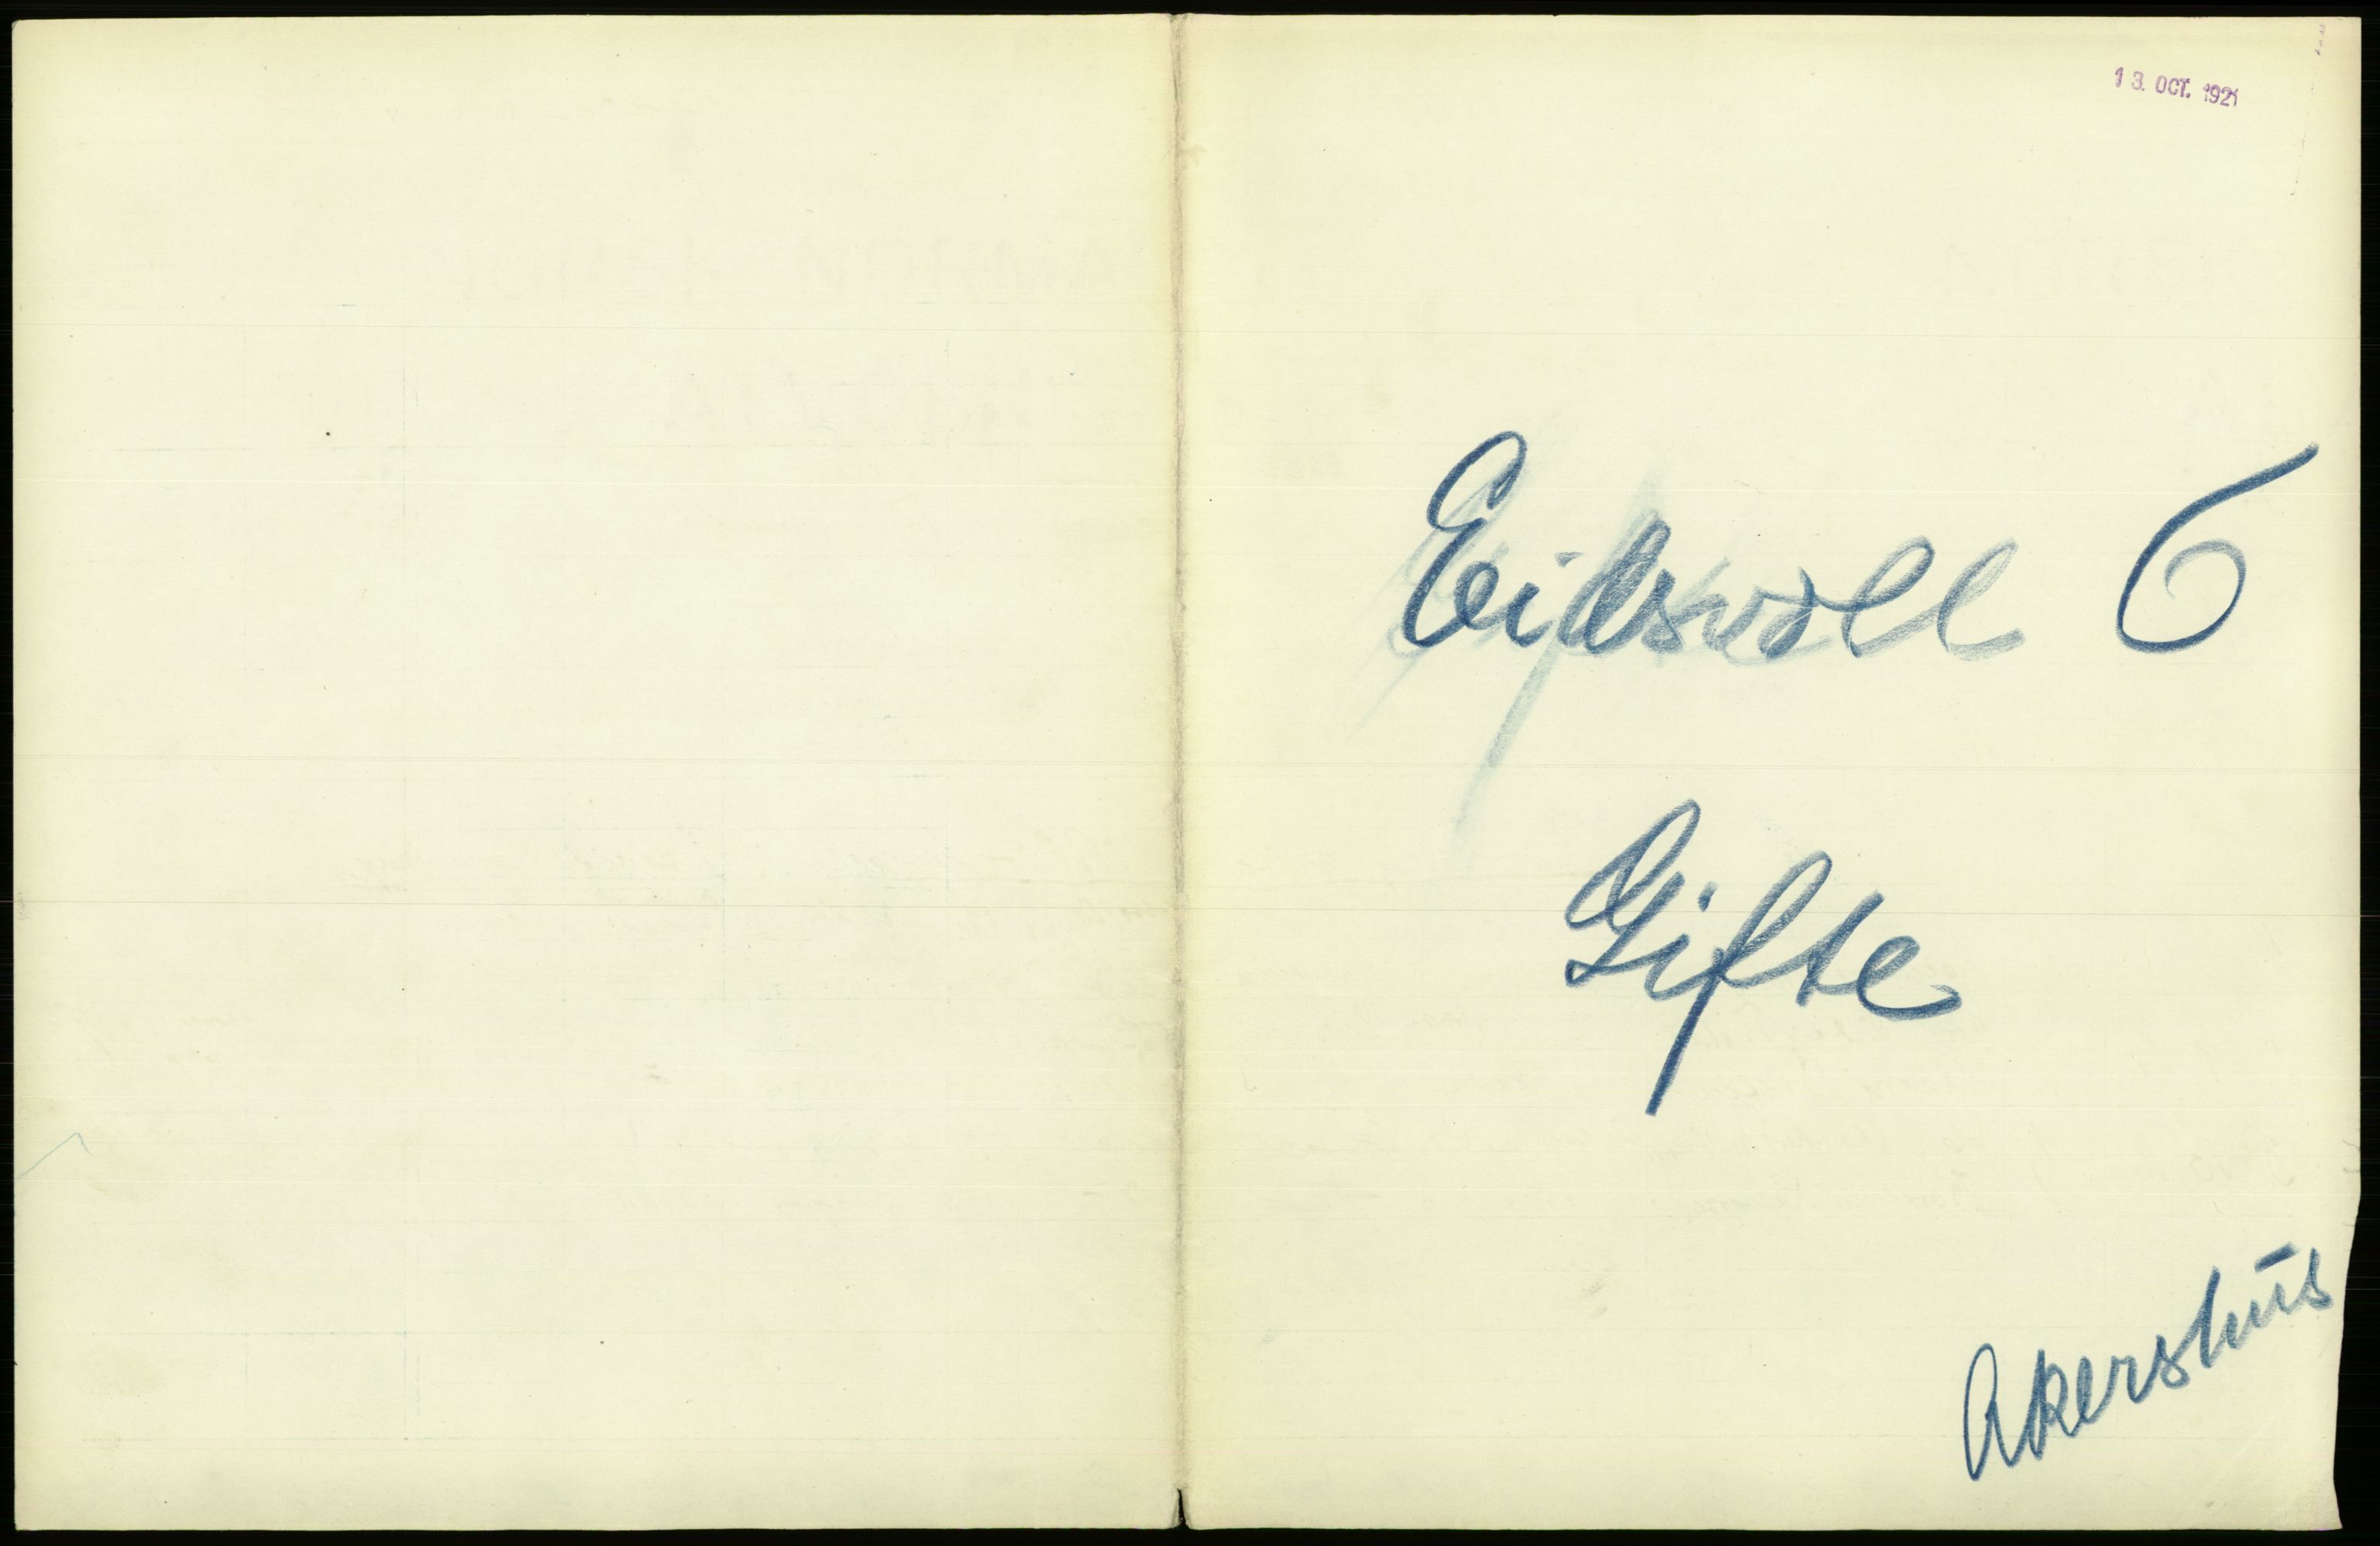 13. OCT. 1921
Eidsvoll 6
Gifte
Akershus